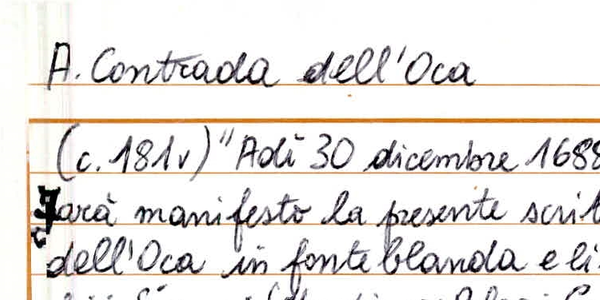 A. Contrada dell'Oca
(c. 181v) "Adì 30 dicembre 1688
Farà manifesto la presente scrit
dell'Oca in fonteblanda e li